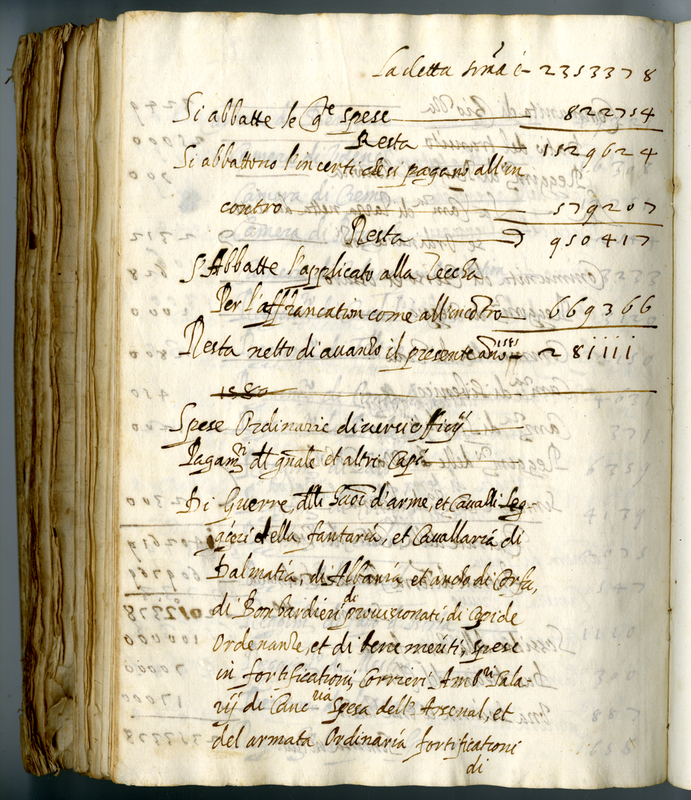 La detta suma è – 2353378
Si abbatte le q.te spese 822754
Resta 1529624
Si abbattono l'incerti che si pagano all'in
contro 579207
Resta 950417
S'Abbatte l'applicato alla Zeccha
Per l'affrancation come all'incontro 669366
Resta netto di avanzo il presente anno 1581 281111
1580
Spese Ordinarie di diversi officij
Pagam.ti del gn̄ale et altri Capi
Di Guerre, delli huoī d'arme, et Cavalli Leg-
gieri della fantaria, et Cavallaria di
Dalmatia, di Albania et ancho di Corfu,
di Bombardieri, di provisionati, di Capi de
Ordenanze, et di bene meriti, spese
in fortificationi, Corrieri Amb.ri Sala-
rij di Canc.ria Spesa dell'Arsenal, et
del armata Ordinaria fortificationi
di